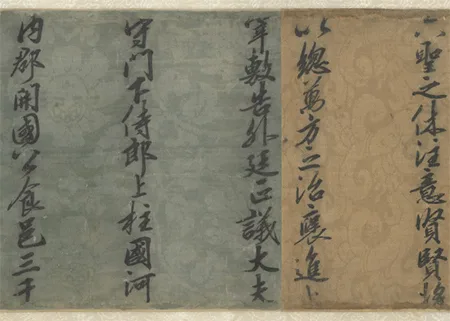 六聖之休注意賢賢將
以總萬方之治襃進上
宰敷告外廷正議大夫
守門下侍郎上柱國河
內郡開國公食邑三千